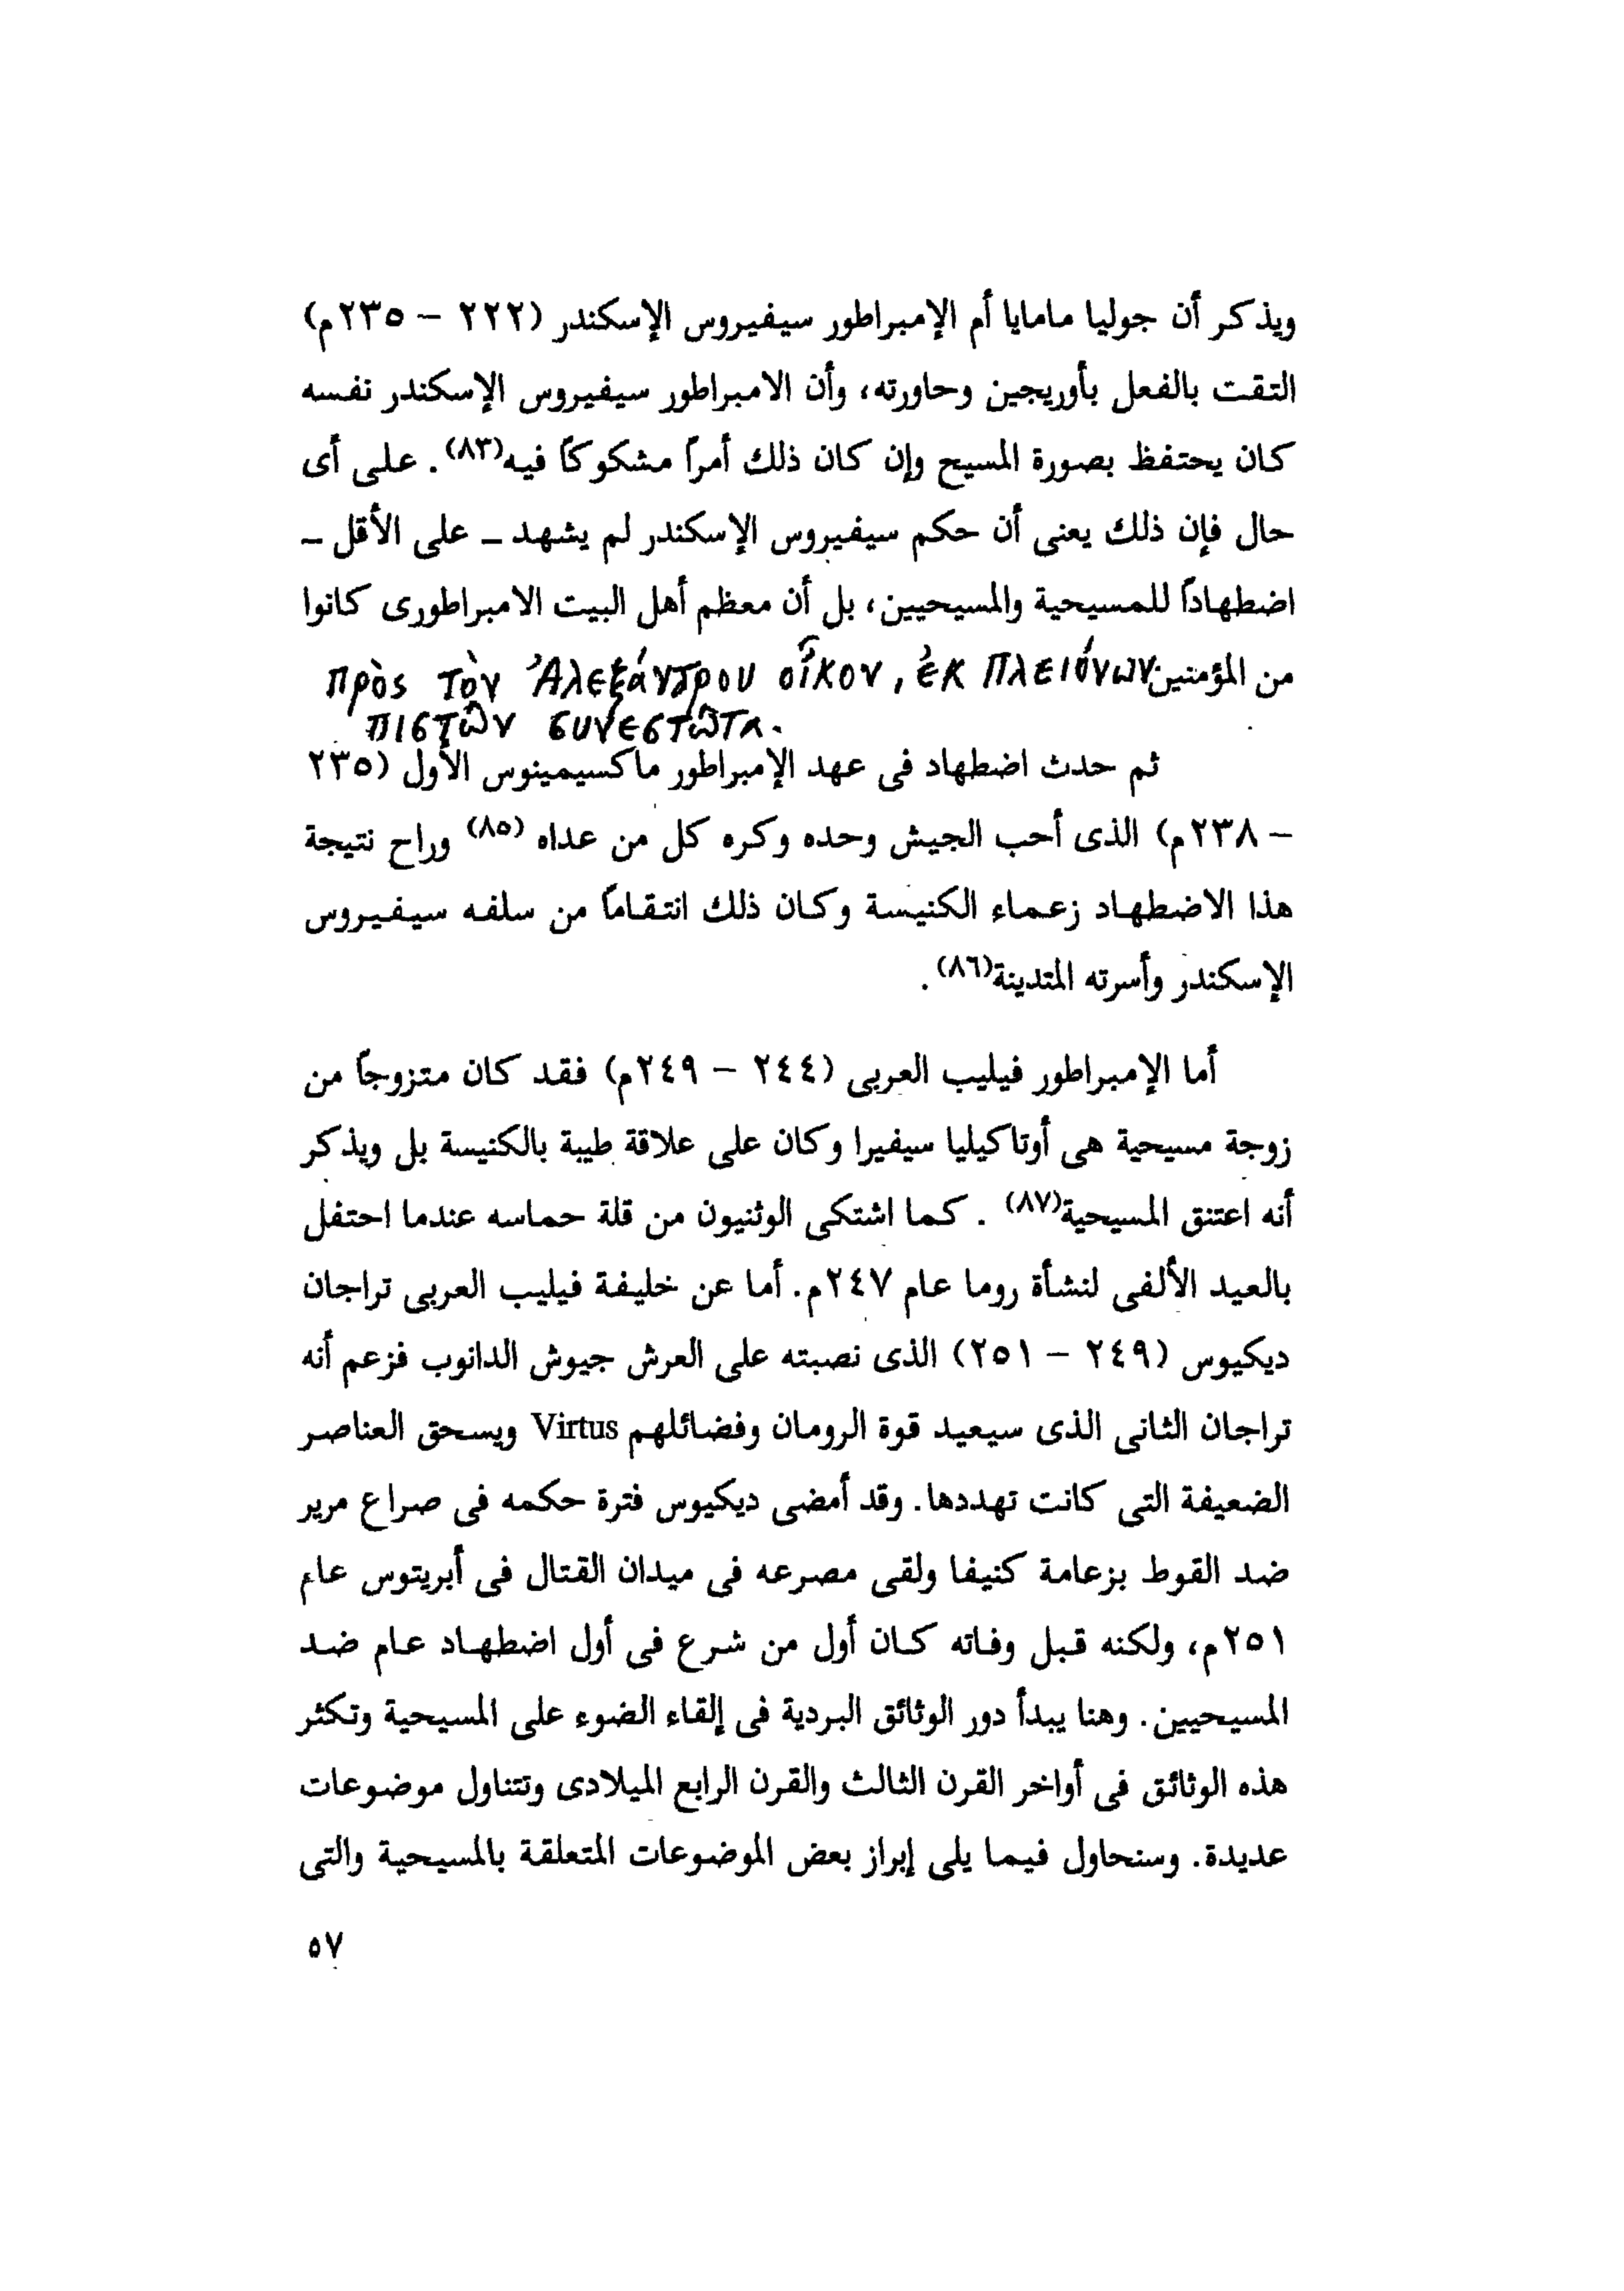 ويذكر أن جوليا مامايا أم الإمبراطور سيفيروس الإسكندر (٢٢٢ – ٢٣٥م)
التقت بالفعل بأوريجين وحاورته، وأن الامبراطور سيفيروس الإسكندر نفسه
كان يحتفظ بصورة المسيح وإن كان ذلك أمراً مشكوكاً فيه(٨٣). على أى
حال فإن ذلك يعنى أن حكم سيفيروس الإسكندر لم يشهد – على الأقل –
اضطهاداً للمسيحية والمسيحيين، بل أن معظم أهل البيت الامبراطورى كانوا
من المؤمنين πρὸς τὸν Ἀλεξάνδρου οἶκον, ἐκ πλειόνων
πιστῶν συνεστῶτα.
ثم حدث اضطهاد فى عهد الإمبراطور ماكسيمينوس الأول (٢٣٥
– ٢٣٨م) الذى أحب الجيش وحده وكره كل من عداه (٨٥) وراح نتيجة
هذا الاضطهاد زعماء الكنيسة وكان ذلك انتقاماً من سلفه سيفيروس
الإسكندر وأسرته المتدينة(٨٦).
أما الإمبراطور فيليب العربى (٢٤٤ – ٢٤٩م) فقد كان متزوجاً من
زوجة مسيحية هى أوتاكيليا سيفيرا وكان على علاقة طيبة بالكنيسة بل ويذكر
أنه اعتنق المسيحية(٨٧). كما اشتكى الوثنيون من قلة حماسه عندما احتفل
بالعيد الألفى لنشأة روما عام ٢٤٧م. أما عن خليفة فيليب العربى تراجان
ديكيوس (٢٤٩ – ٢٥١) الذى نصبته على العرش جيوش الدانوب فزعم أنه
تراجان الثانى الذى سيعيد قوة الرومان وفضائلهم Virtus ويسحق العناصر
الضعيفة التى كانت تهددها. وقد أمضى ديكيوس فترة حكمه فى صراع مرير
ضد القوط بزعامة كنيفا ولقى مصرعه فى ميدان القتال فى أبريتوس عام
٢٥١م، ولكنه قبل وفاته كان أول من شرع فى أول اضطهاد عام ضد
المسيحيين. وهنا يبدأ دور الوثائق البردية فى إلقاء الضوء على المسيحية وتكثر
هذه الوثائق فى أواخر القرن الثالث والقرن الرابع الميلادى وتتناول موضوعات
عديدة. وسنحاول فيما يلى إبراز بعض الموضوعات المتعلقة بالمسيحية والتى
٥٧